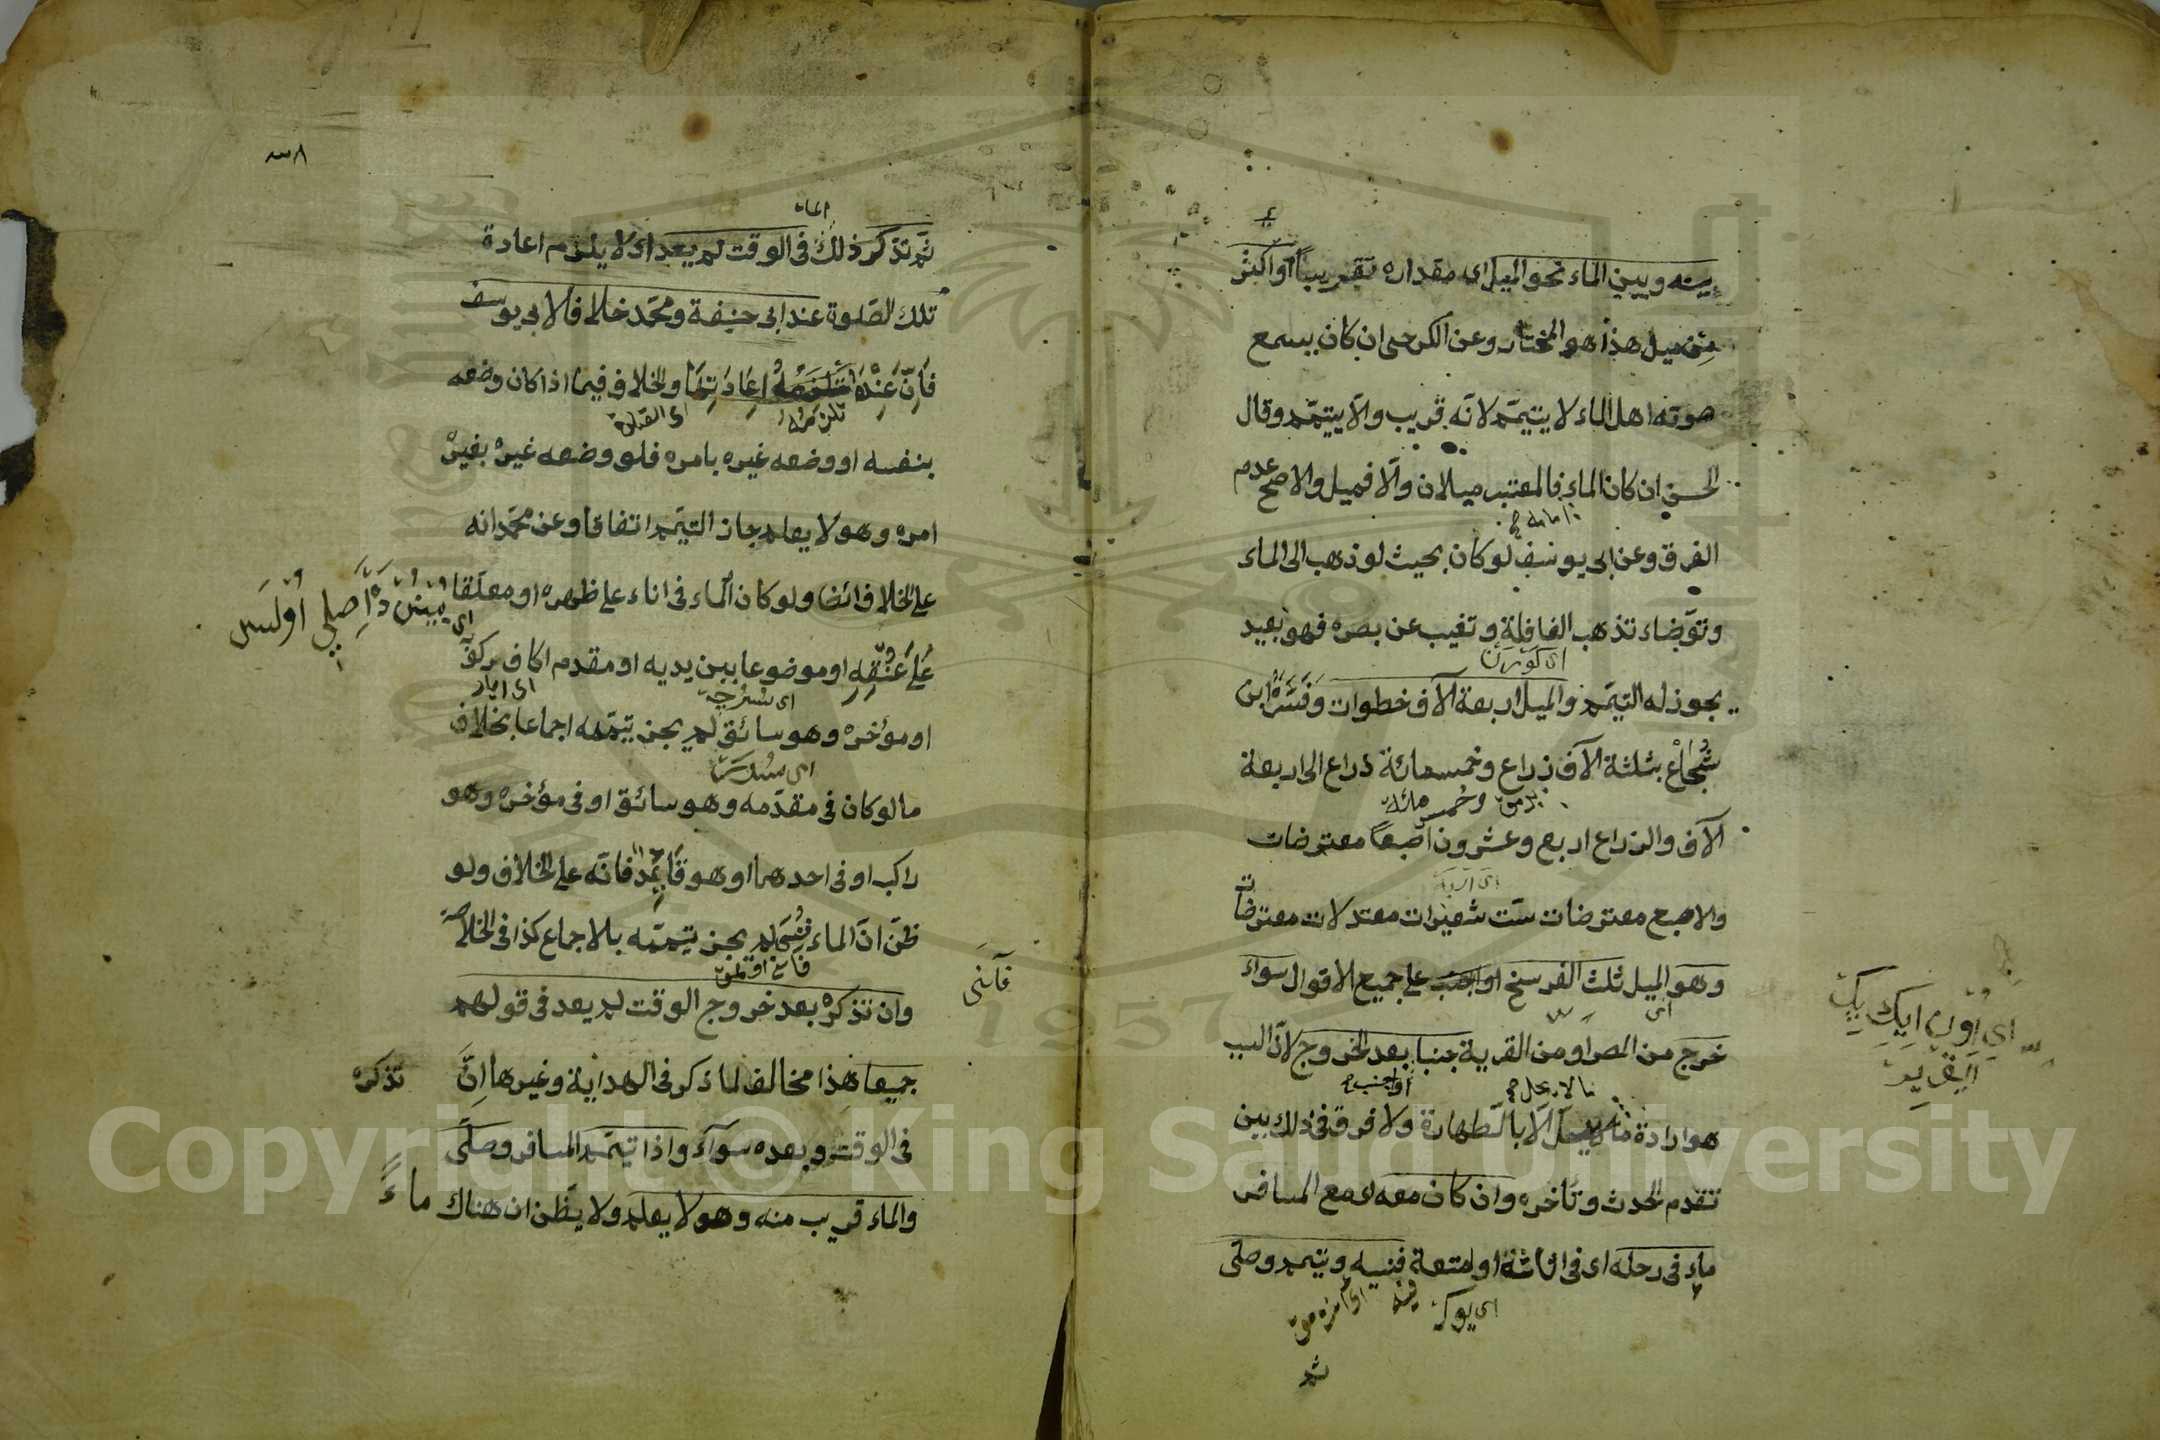 بينه وبين الماء نحو الميل اى مقداره تقريبا او اكثر
من ميل هذا هو المختار وعن الكرخى ان كان يسمع
صوته اهل الماء لا يتيمم لانه قريب والا يتيمم وقال
الحسن ان كان الماء فالمعتبر ميلان والا فميل والاصح عدم
امامه
الفرق وعن ابى يوسف لو كان بحيث لو ذهب الى الماء
وتوضاء تذهب القافلة وتغيب عن بصره فهو بعيد
يجوز له التيمم والميل اربعة آلاف خطوات وفسره ابن
شجاع بثلثة آلاف ذراع وخمسمائة ذراع الى اربعة
وخمس مائة
آلاف والذراع اربع وعشرون اصبعا معترضات
والاصبع معترضات ست شعيرات معتدلات معترضات
وهو الميل ثلث الفرسخ على جميع الاقوال سواء
خرج من المصر او من القرية جنبا بعد الخروج لان السبب
او اجنب
ما لا يحل
هو ارادة الا بالطهارة ولا فرق فى ذلك بين
تقدم الحدث وتأخره وان كان معه اى مع المسافر
ماء فى رحله اى فى اثاثه او امتعة فنسيه وتيمم وصلى
٨٣
الماء
ثم تذكر ذلك فى الوقت لم يعد اى لا يلزم اعادة
تلك الصلوة عند ابى حنيفة ومحمد خلافا لابى يوسف
فان عنده اعادتها والخلاف فيما اذا كان وضعه
تلزمه
اى الصلوة
بنفسه او وضعه غيره بامره فلو وضعه غيره بغير
امره وهو لا يعلم جاز التيمم اتفاقا وعن محمد انه
على الخلاف ايضا ولو كان الماء فى اناء على ظهره او معلقا
على عنقه او موضوعا بين يديه او مقدم اكاف ركوة
او مؤخره وهو سائق لم يجز تيممه اجماعا بخلاف
ما لو كان فى مقدمه وهو سائق او فى مؤخره وهو
راكب او فى احدهما وهو قائد فانه على الخلاف ولو
ظن ان الماء فنى لم يجز تيممه بالاجماع كذا فى الخلاصة
وان تذكره بعد خروج الوقت لم يعد فى قولهم
جميعا هذا مخالف لما ذكر فى الهداية وغيرها ان
تذكره
فى الوقت وبعده سواء واذا تيمم المسافر وصلى
والماء قريب منه وهو لا يعلم ولا يظن ان هناك ماء
Copyright © King Saud University
1957